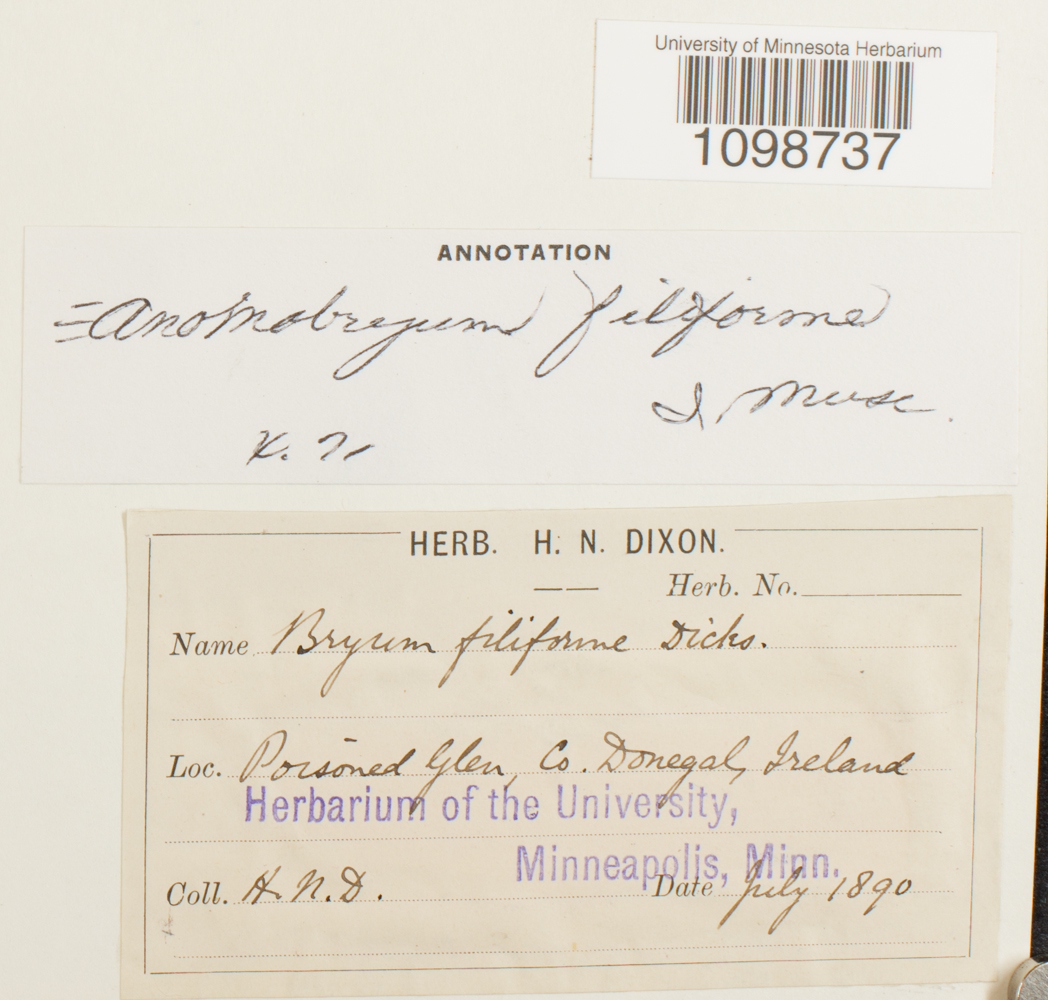 University of Minnesota Herbarium
1098737
ANNOTATION
=Anomobryum filiforme
I. Musc.
HERB. H. N. DIXON.
Herb. No.
Name Bryum filiforme Dicks.
Loc. Poisoned Glen, Co. Donegal, Ireland
Herbarium of the University,
Minneapolis, Minn.
Coll. H. N. D. Date July 1890